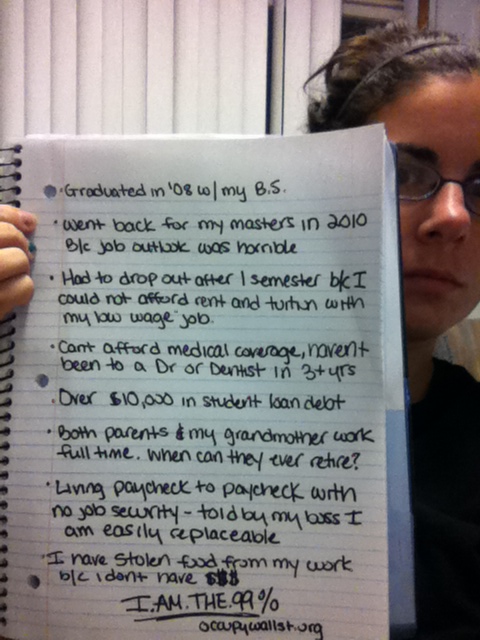 · Graduated in '08 w/ my B.S.
· Went back for my masters in 2010
B/c job outlook was horrible
· Had to drop out after 1 semester b/c I
could not afford rent and tuition with
my low wage job.
· Cant afford medical coverage, haven't
been to a Dr or Dentist in 3+ yrs
· Over $10,000 in student loan debt
· Both parents & my grandmother work
full time. When can they ever retire?
· Living paycheck to paycheck with
no job security - told by my boss I
am easily replaceable
· I have stolen food from my work
b/c i dont have $$$
I.AM.THE.99%
occupywallst.org